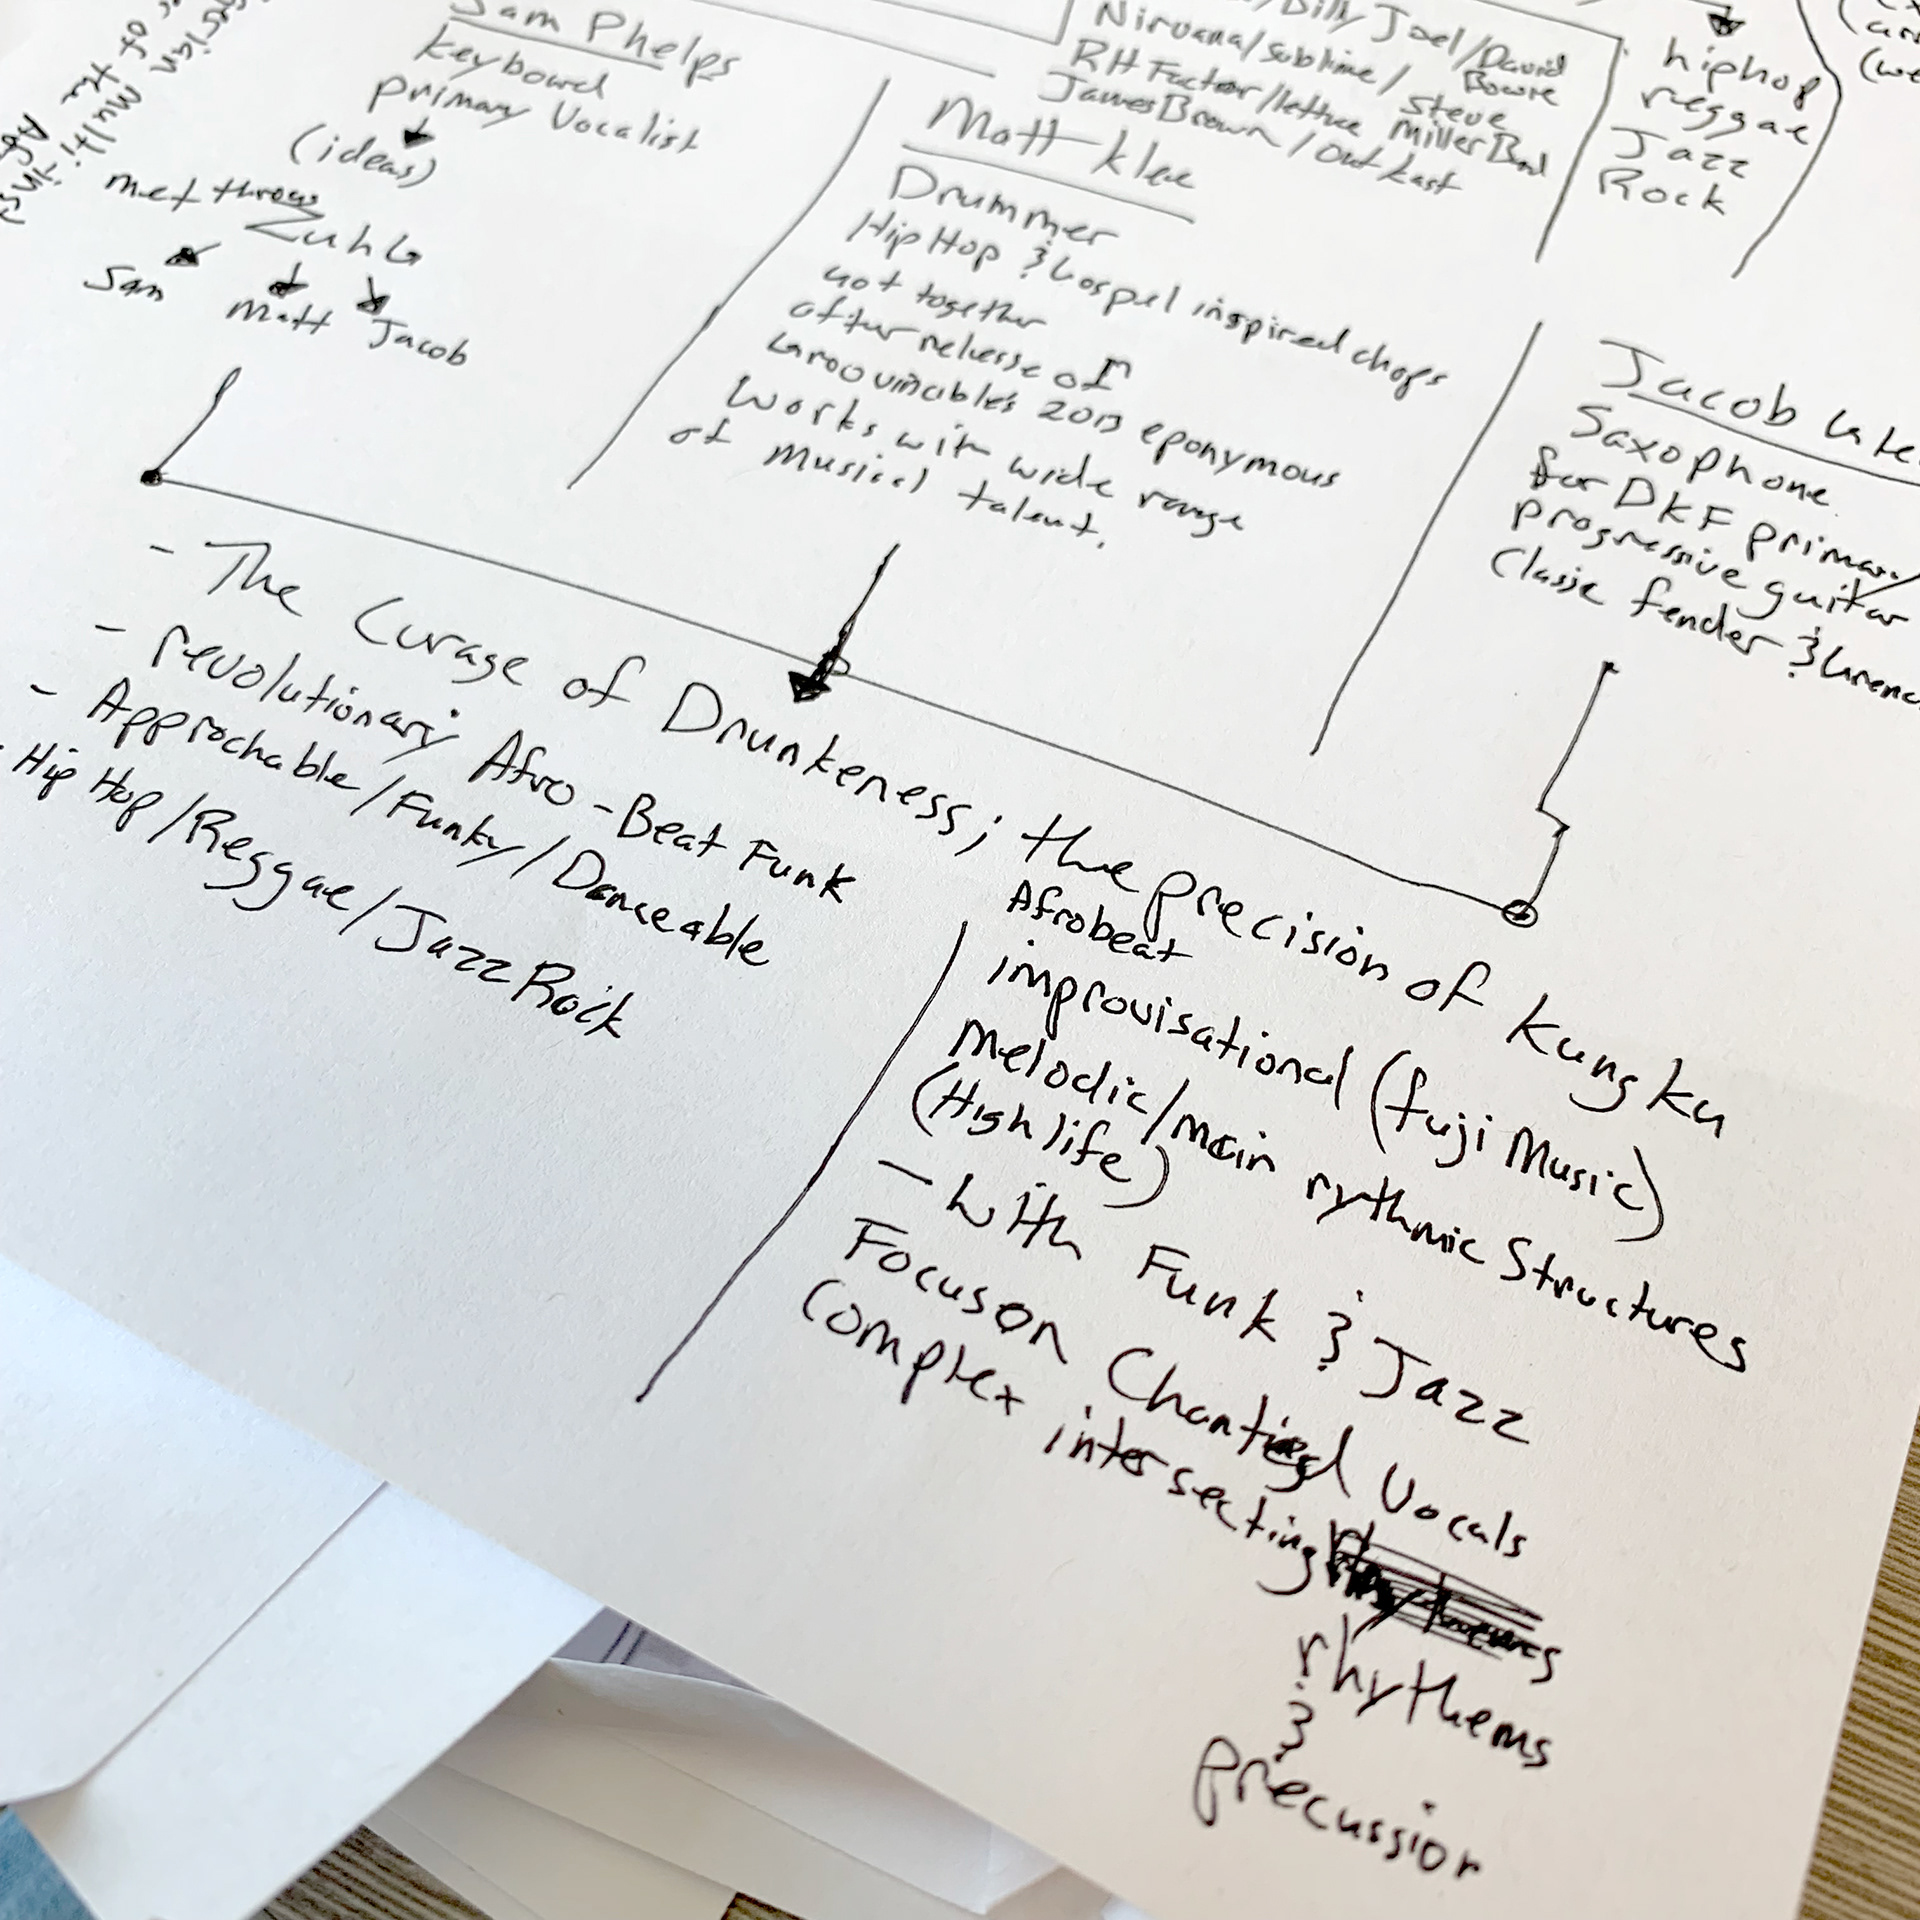 Sam Phelps
keyboard
primary Vocalist
(ideas)
met throug
Zuhg
Sam
Matt
Jacob
of the
Multi-ins
Billy Joel/David
Bowie
Nirvana/Sublime/Steve
Miller Band
RH Factor/lettuce
James Brown/Outkast
hiphop
reggae
Jazz
Rock
Matt Klee
Drummer
Hip Hop & Gospel inspired chops
got together
after release of
Groovincible's 2013 eponymous
works with wide range
of musical talent.
Jacob
Saxophone
for DKF primary
progressive guitar
Classic fender &
- The Curage of Drunkeness; the precision of Kung ku
- revolutionary Afro-Beat Funk
- Approchable/Funky/Danceable
- Hip Hop/Reggae/Jazz Rock
Afrobeat
improvisational (fuji Music)
Melodic/main rythmic Structures
(High life)
- With Funk & Jazz
Focus on Chanted Vocals
Complex intersecting
rhythems
&
precussion